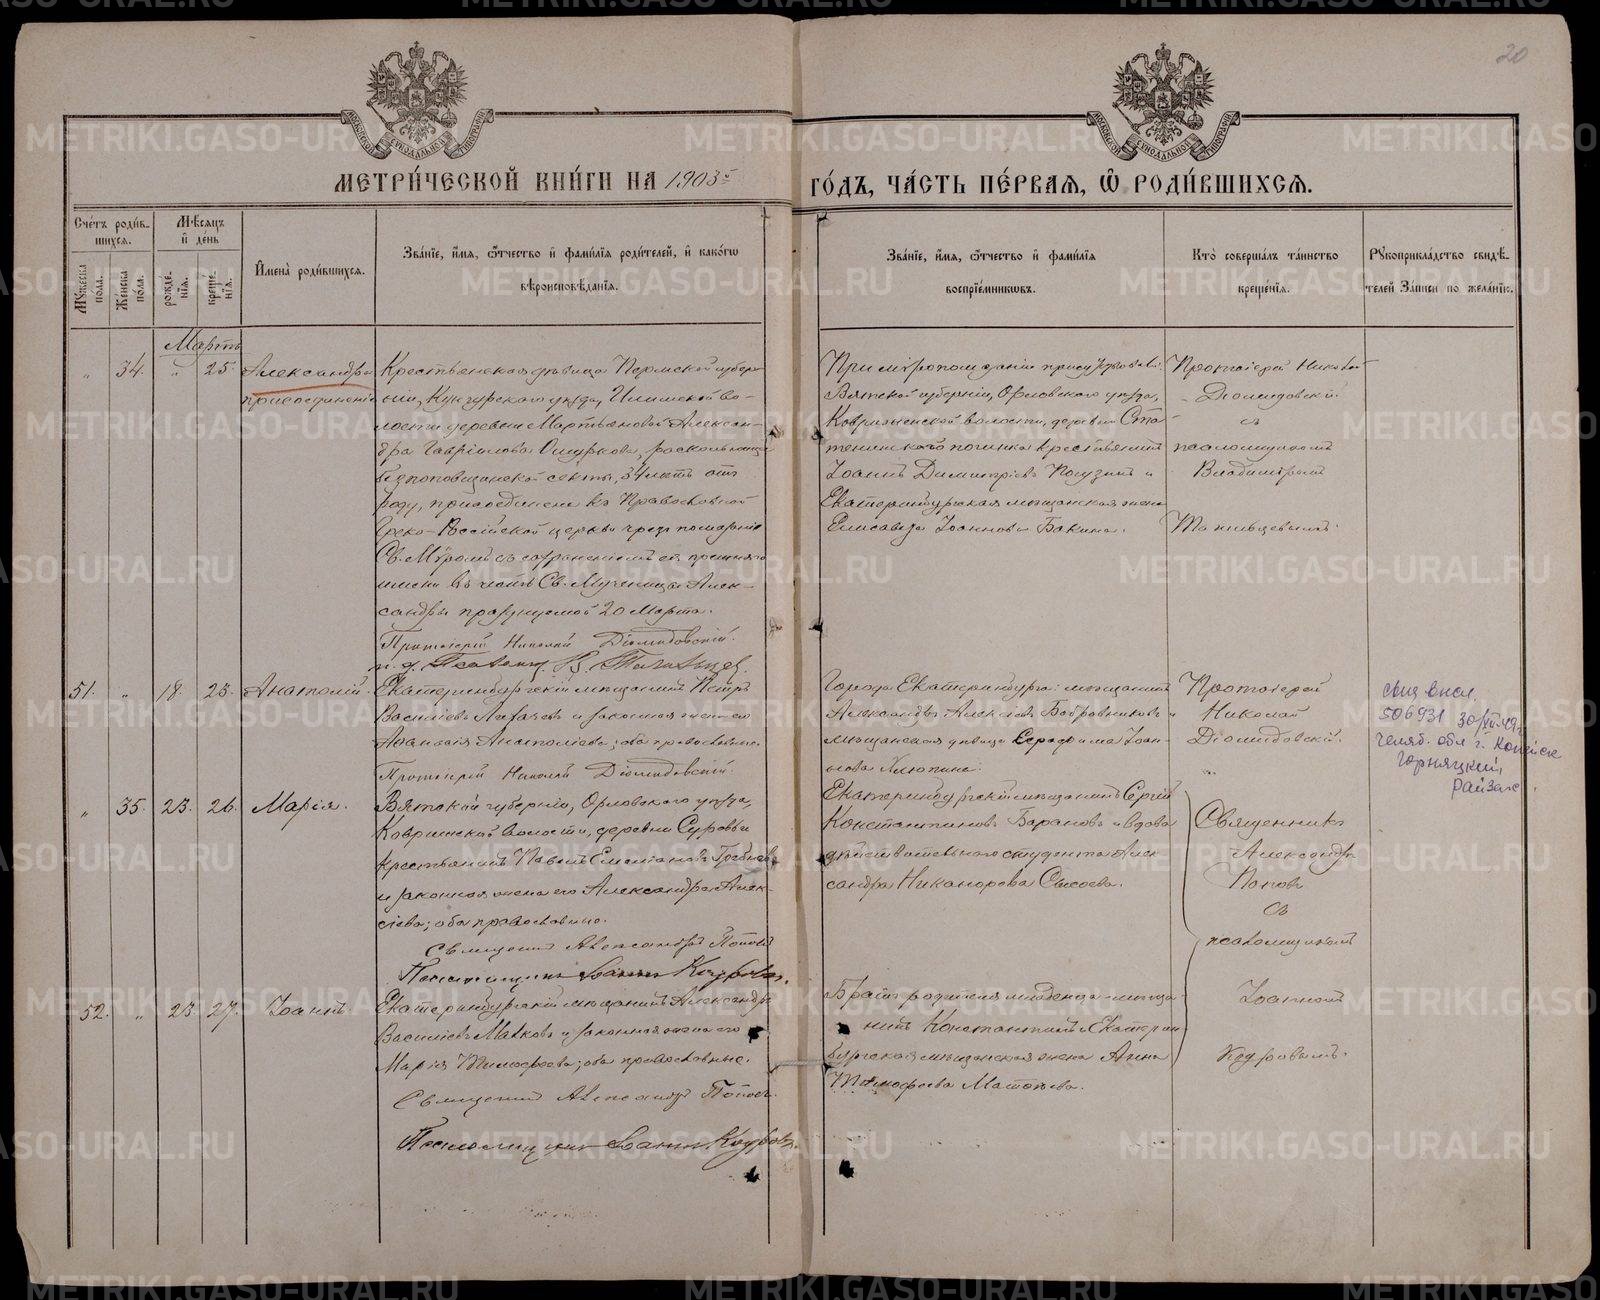 20
МОСКОВСКОЙ СѴНОДАЛЬНОЙ ТИПОГРАФІИ
МОСКОВСКОЙ СѴНОДАЛЬНОЙ ТИПОГРАФІИ
МЕТРИ́ЧЕСКОЙ КНИ́ГИ НА 1903й
ГО́ДЪ, ЧА́СТЬ ПЕ́РВАЯ, Ѡ҆ РОДИ́ВШИХСЯ.
Сче́тъ роди́вшихся.
Мужеска по́ла.
Же́нска по́ла.
Мѣ́сяцъ и҆ де́нь
рожде́нїя.
креще́нїя.
И҆мена̀ роди́вшихся.
Зва́нїе, и҆́мя, ѻ҆́тчество и҆ фами́лїя роди́телей, и҆ како́гѡ
вѣроисповѣ́данїя.
Зва́нїе, и҆́мя, ѻ҆́тчество и҆ фами́лїя
воспрїе́мникѡвъ.
Кто̀ соверша́лъ та́инство
креще́нїя.
Рукоприкла́дство свидѣ́-
телей за́писи по жела́нїю.
Мартъ
„ 34. „ 25. Александра
присоединеніе
Крестьянская дѣвица Пермской губер
ніи, Кунгурскаго уѣзда, Илимской во-
лости деревни Мартьяновой Алексан-
дра Гавріилова Ошуркова, раскольница
безпоповщинской секты, 34 лѣтъ отъ
роду, присоединена къ Православной
Греко-Россійской церкви чрезъ помазаніе
Св. Мѵромъ съ сохраненіемъ ея прежняго
имени въ честь Св. Мученицы Алек-
сандры празднуемой 20 Марта.
Протоіерей Николай Діомидовскій.
При мѵропомазаніи присутствовали:
Вятской губерніи, Орловскаго уѣзда,
волости, деревни
починка крестьянинъ
Іоаннъ Димитріевъ и
Екатеринбургская мѣщанская жена
Елисавета Іоаннова Бакина.
Протоіерей Николай
Діомидовскій
съ
псаломщикомъ
Владиміромъ
51. „ 18. 25. Анатолій.
Екатеринбургскій мѣщанинъ Петръ
Василіевъ и законная жена его
Аѳанасія Анатоліева; оба православные.
Протоіерей Николай Діомидовскій
Города Екатеринбурга: мѣщанинъ
Александръ Алексіевъ Бобровниковъ и
мѣщанская дѣвица Серафима Іоан-
нова
Протоіерей
Николай
Діомидовскій.
506931 30/XII 49 г
челяб. обл г. Копейск
Горняцкий
райзагс.
„ 35. 23. 26. Марія.
Вятской губерніи, Орловскаго уѣзда,
волости, деревни
крестьянинъ Павелъ Емеліановъ
и законная жена его Александра Алек-
сіева; оба православные.
Священникъ Александръ Поповъ
Псаломщикъ Іоаннъ Кедровъ.
Екатеринбургскій мѣщанинъ Сергій
Константиновъ Барановъ и вдова
дѣйствительнаго студента Алек-
сандра Никанорова Сысоева.
Священникъ
Александръ
Поповъ
съ
псаломщикомъ
Іоанномъ
Кедровымъ.
52. „ 23. 27. Іоаннъ.
Екатеринбургскій мѣщанинъ Александръ
Василіевъ и законная жена его
Марія Тимофеева; оба православные.
Священникъ Александръ Поповъ.
Псаломщикъ Іоаннъ Кедровъ.
Братъ родителя младенца мѣща-
нинъ Константинъ и Екатерин-
бургская мѣщанская жена Анна
Тимофеева
METRIKI.GASO-URAL.RU